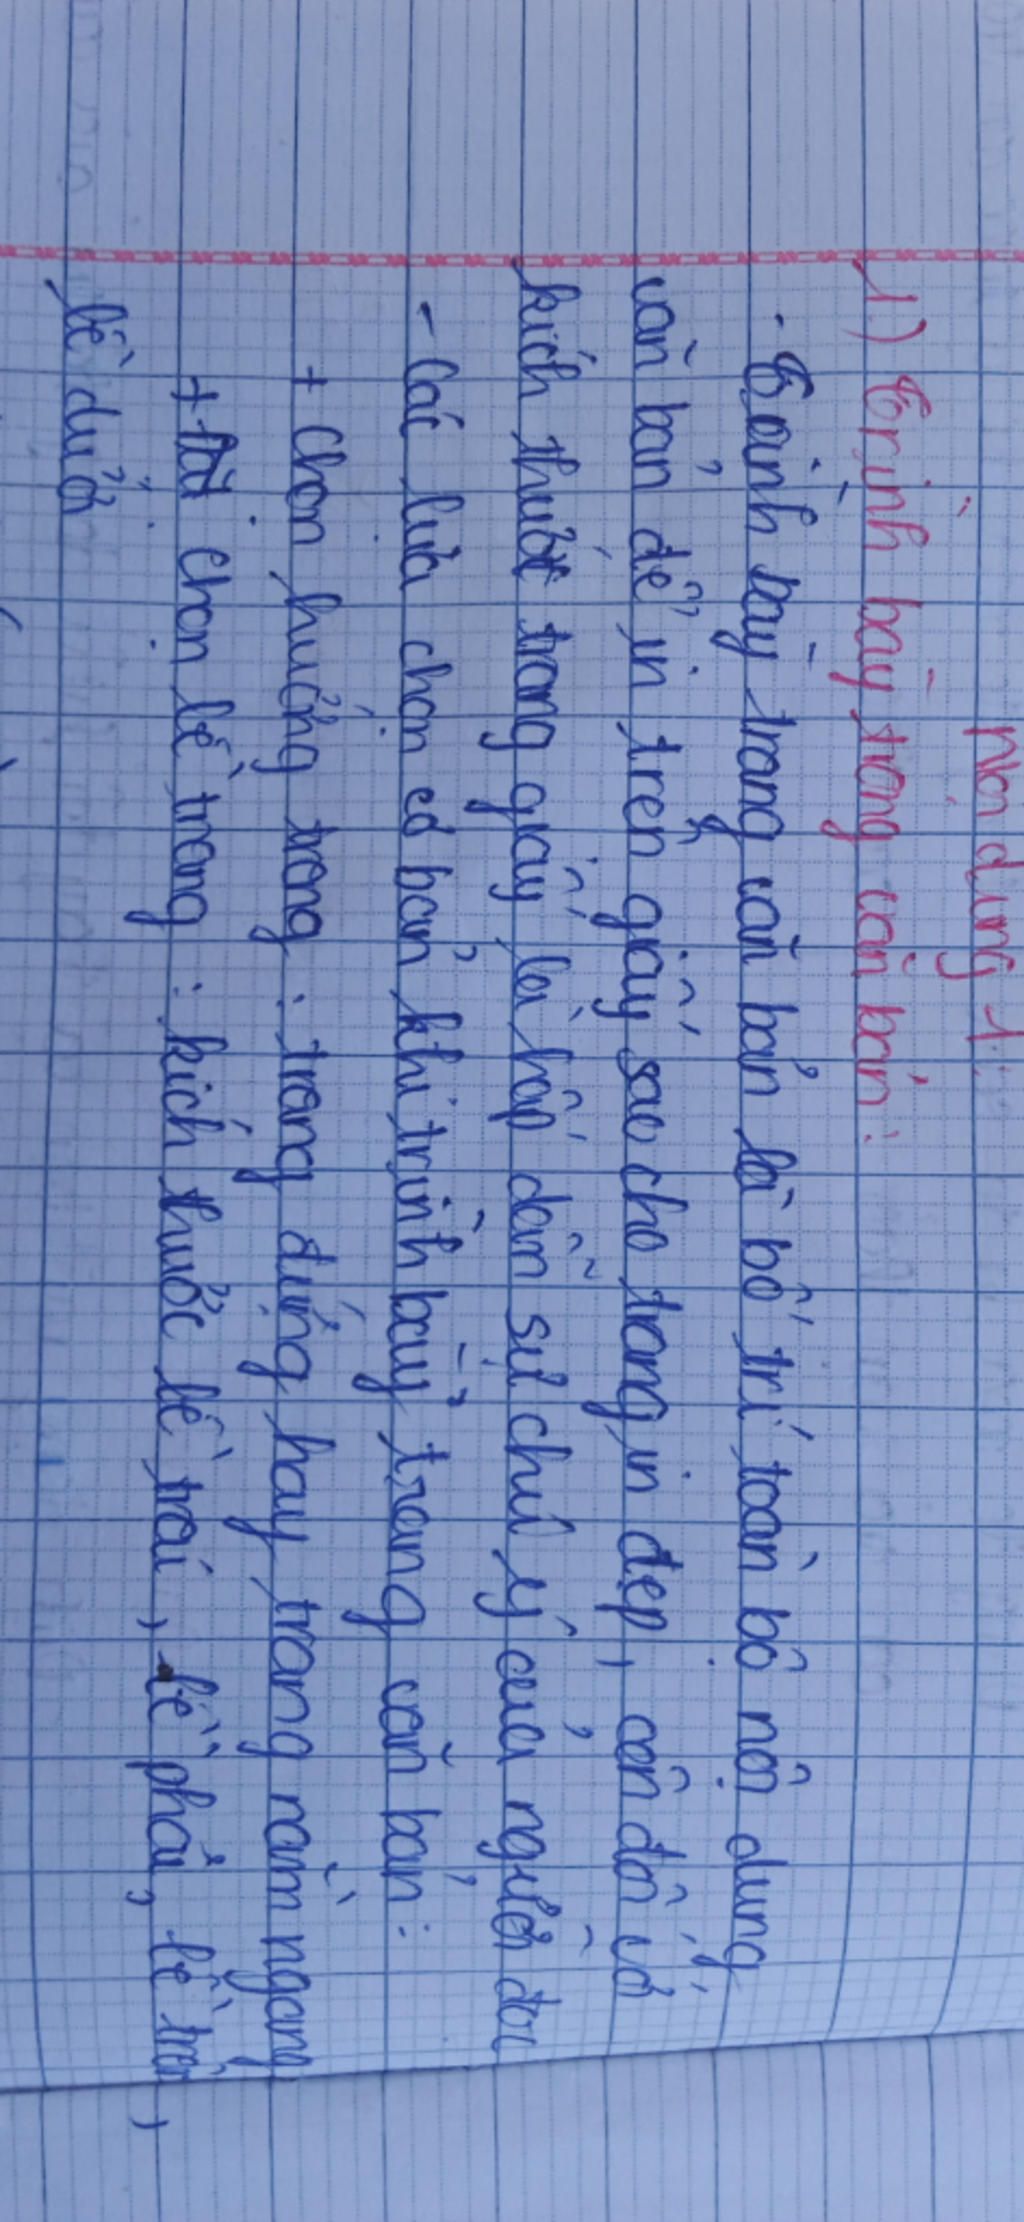 Nội dung 1:
1.) Trình bày trang văn bản:
- Trình bày trang văn bản là bố trí toàn bộ nội dung
văn bản để in trên giấy sao cho trang in đẹp, cân đối với
kích thước trang giấy, lôi hấp dẫn sự chú ý của người đọc
- Các lựa chọn cơ bản khi trình bày trang văn bản:
+ Chọn hướng trang: trang đứng hay trang nằm ngang
+ Đặt chọn lề trang: kích thước lề trái, lề phải, lề trên,
lề dưới